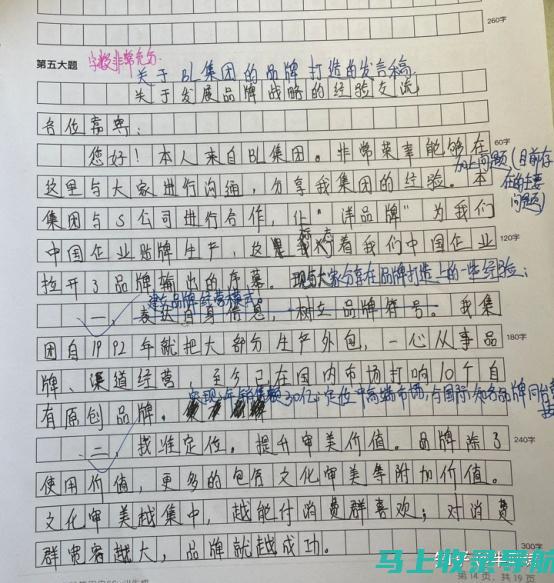 260字
第五大题
字迹非常充分
关于BL集团的品牌打造的发言稿
关于发展品牌战略的经验交流
各位嘉宾：
您好！本人来自BL集团。非常荣幸能够在
60字
加上问题(目前存在的主要问题)
这里与大家进行沟通，分享我集团的经验。本
集团与S公司进行合作，让“洋品牌”为我们
中国企业贴牌生产，这标志着我们中国企业
120字
拉开了品牌输出的序幕。现与大家分享在品牌打造上的一些经验：
建立品牌经营模式。
一，表达自身信息，树立品牌符号。我集
团自1992年就把大部分生产外包，一心从事品
180字
牌、渠道经营，至今已在国内市场打响10个自
有原创品牌。
实现年销售额30亿；定位中高端市场，与国际知名品牌同台竞技
二，找准定位。提升审美价值。品牌除了
240字
使用价值，更多的包含文化审美等附加价值。
文化审美越集中，越能付消费群喜欢；对消费
群宽容越大，品牌就越成功。
300字
马上收录导航
第14页，共19页